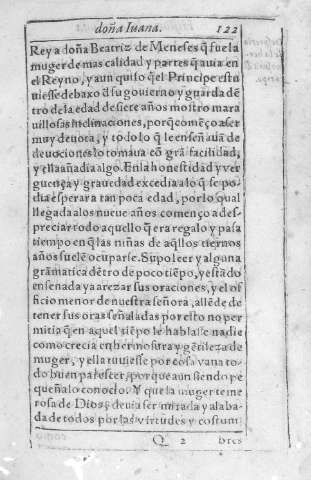 doña Iuana. 122
Rey a doña Beatriz de Meneses q̃ fue la
muger de mas calidad y partes q̃ auia en
el Reyno, y aun quiso q̃ el Principe estu
uiesse debaxo ď su gouierno y guarda dẽ
tro de la edad de siete años mostro mara
uillosas inclinaciones, porq̃ comẽço a ser
muy deuota, y todo lo q̃ le enseñauã de
deuociones lo tomaua cõ grã facilidad,
y ella añadia algo. En la honestidad y ver
guença y grauedad excedia a lo q̃ se po-
dia esperar a tan poca edad, por lo qual
llegada a los nueue años començo a des-
preciar todo aquello q̃ era regalo y passa
tiempo en q̃ las niñas de aq̃llos tiernos
años suelẽ ocuparse. Supo leer y alguna
grãmatica dẽtro de poco tiẽpo, y estãdo
enseñada ya a rezar sus oraciones, y el of
ficio menor de nuestra señora, allẽde de
tener sus oras señaladas por esto no per
mitia q̃ en aquel tiẽpo le hablasse nadie
como crecia en hermosura y gẽtileza de
muger, y ella tuuiesse por cosa vana to-
do buen parescer, porque aun siendo pe
queña lo conocio. Y que la muger teme
rosa de Dios, deuia ser mirada y alaba-
da de todos por las virtudes y costum
Q 2 bres